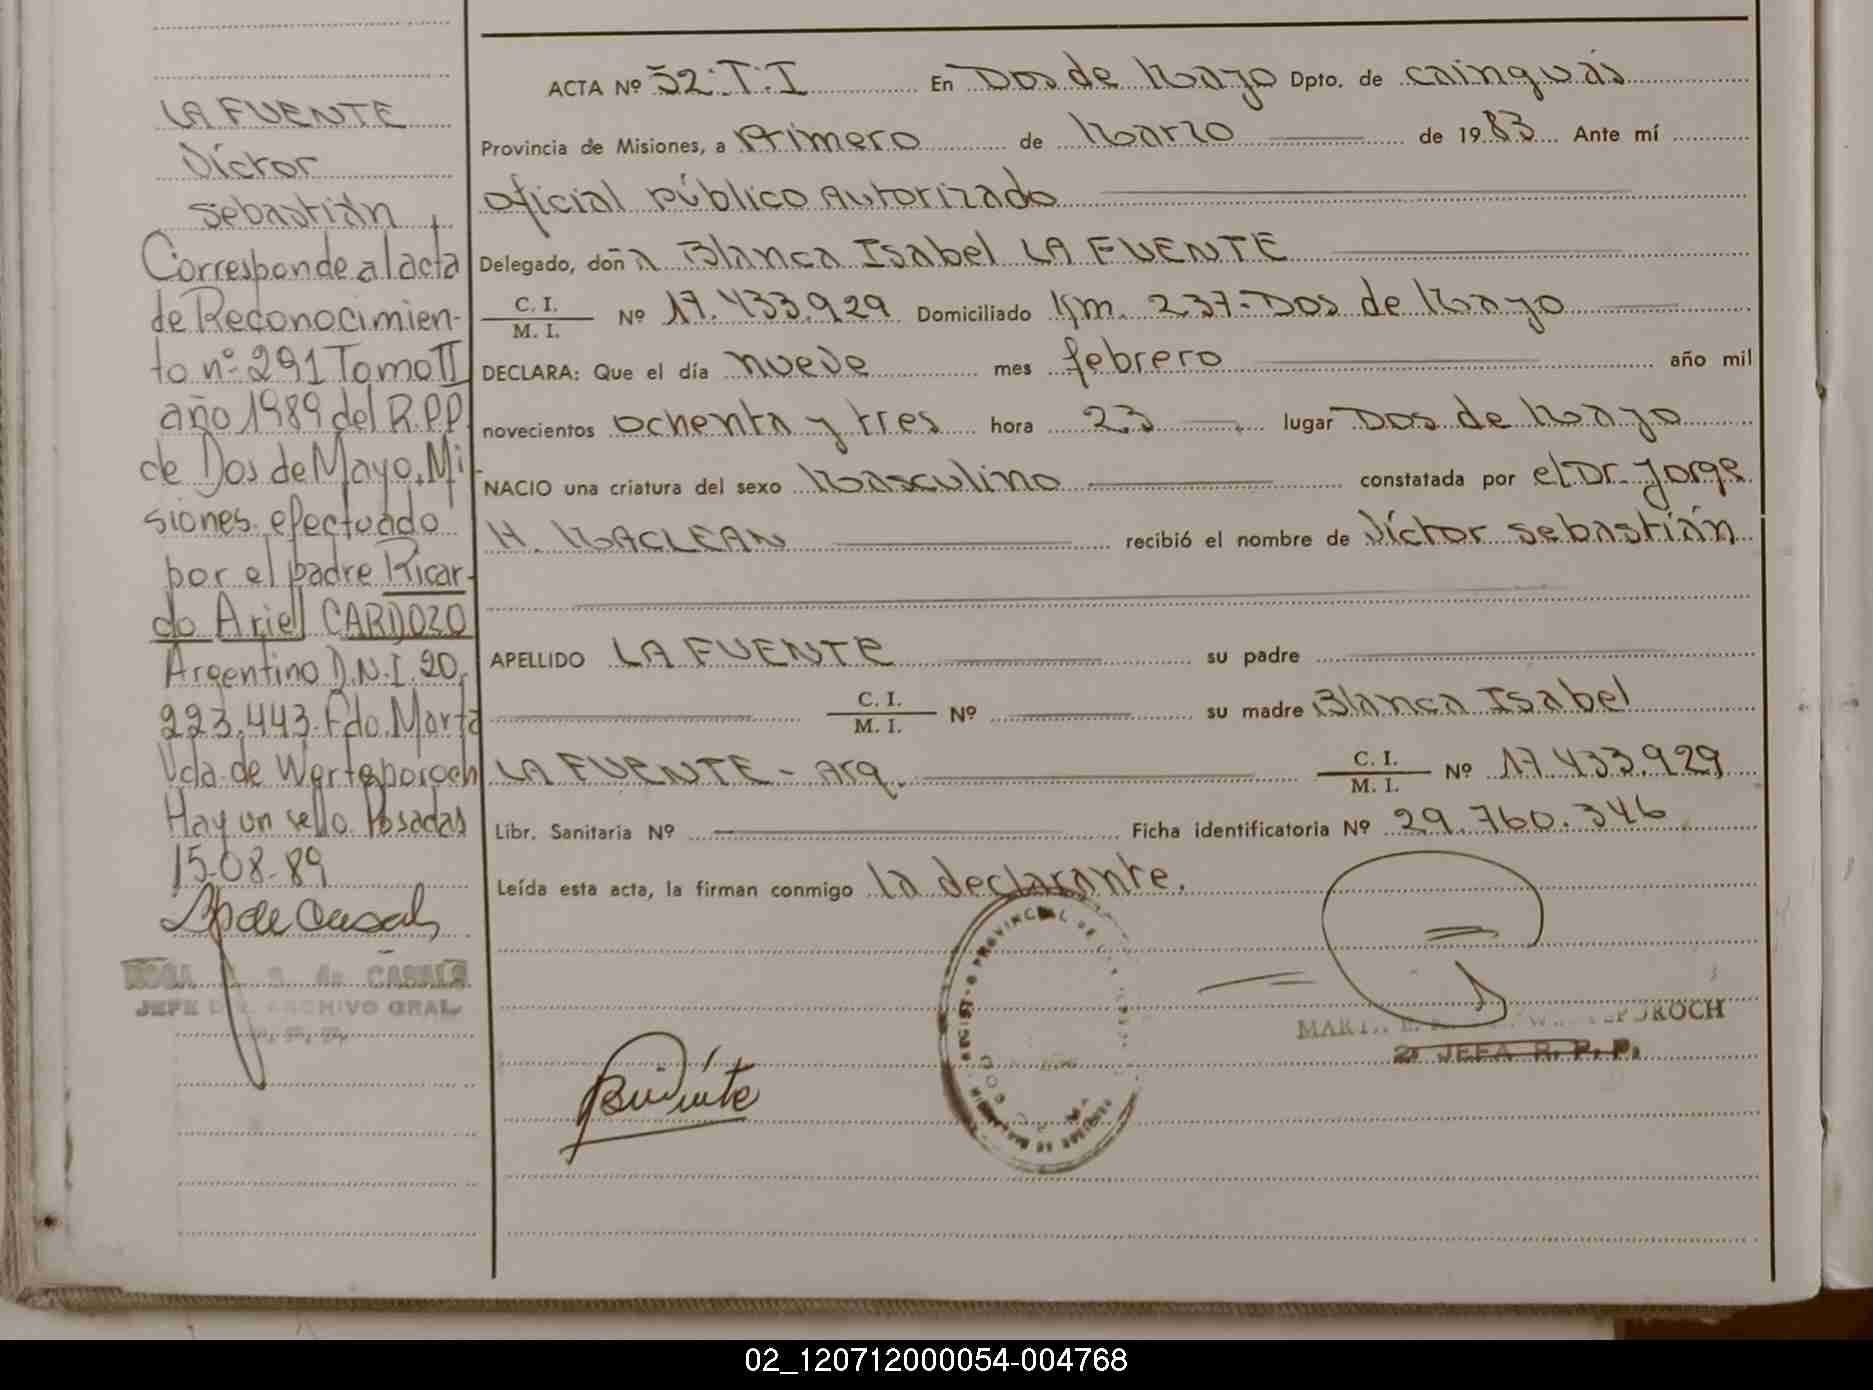 LA FUENTE
Víctor
Sebastián
Corresponde al acta
de Reconocimien-
to nº 291 Tomo II
año 1989 del R.P.P.
de Dos de Mayo, Mi-
siones, efectuado
por el padre Ricar-
do Ariel CARDOZO
Argentino D.N.I. 20.
223.443. Fdo. Marta
Vda. de
Hay un sello. Posadas
15-08-89
de CASALS
JEFE DEL ARCHIVO GRAL.
ACTA Nº 52-T.I En Dos de Mayo Dpto. de cainguás
Provincia de Misiones, a Primero de Marzo de 1983 Ante mí
oficial público Autorizado
Delegado, doña Blanca Isabel LA FUENTE
C. I.
M. I. Nº 17.433.929 Domiciliado Km. 237-Dos de Mayo
DECLARA: Que el día nueve mes febrero año mil
novecientos ochenta y tres hora 23 lugar Dos de Mayo
NACIO una criatura del sexo Masculino constatada por el Dr. Jorge
H. MACLEAN recibió el nombre de Víctor Sebastián
APELLIDO LA FUENTE su padre
C. I.
M. I. Nº su madre Blanca Isabel
LA FUENTE - Arg. C. I.
M. I. Nº 17.433.929
Libr. Sanitaria Nº Ficha identificatoria Nº 29.760.346
Leída esta acta, la firman conmigo la declarante.
2º JEFA R. P. P.
02_120712000054-004768